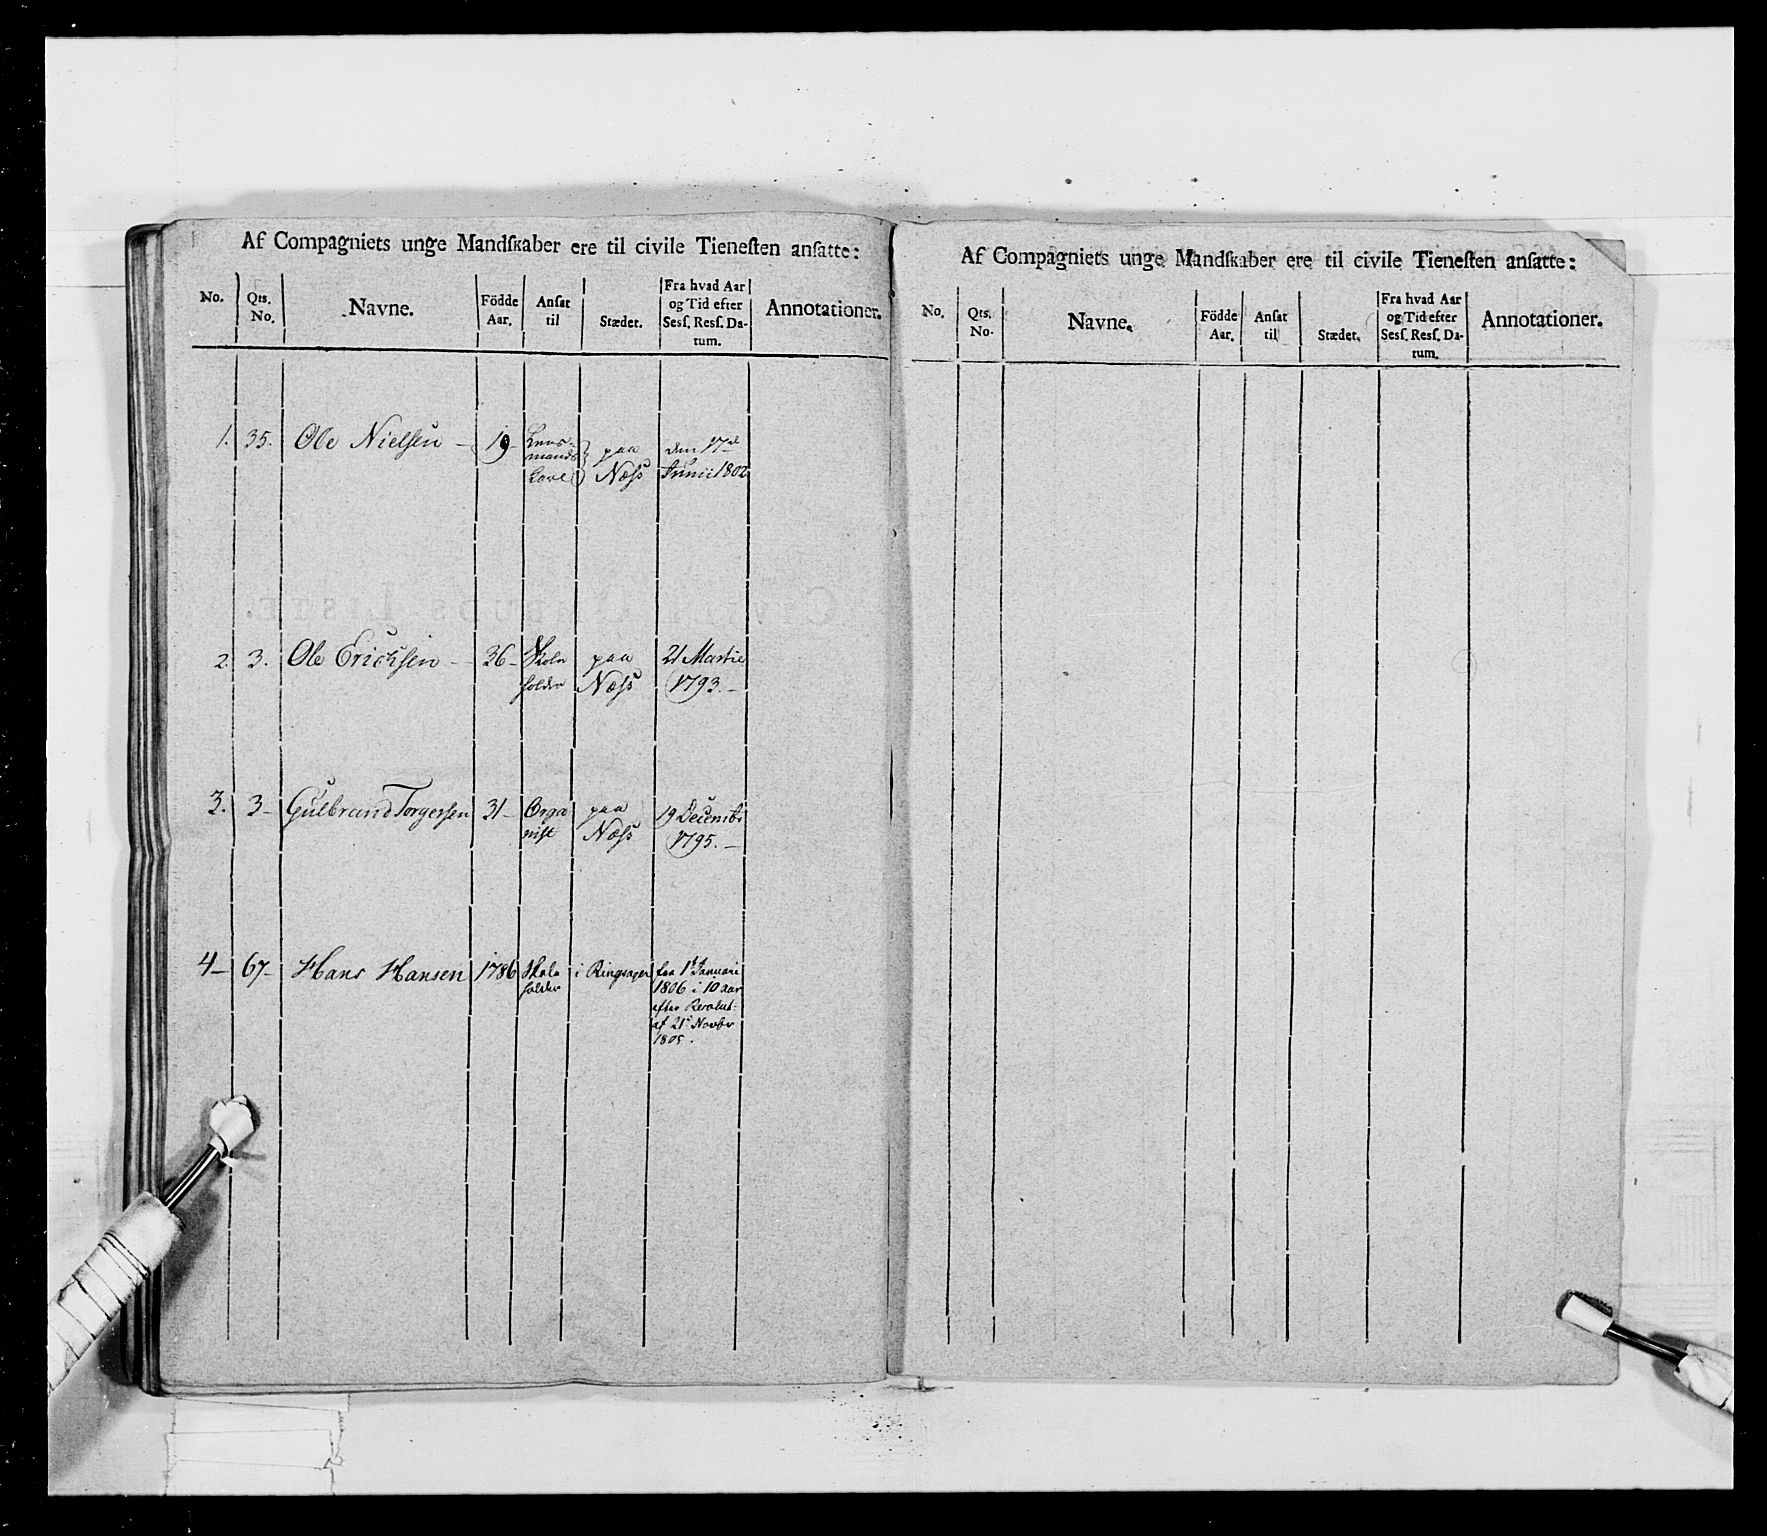 Af Compagniets unge Mandskaber ere til civile Tienesten ansatte:
No. Qts. No. Navne. Födde Aar. Ansat til Stædet. Fra hvad Aar og Tid efter Sess. Ress. Datum. Annotationer.
1. 35. Ole Nielsen – 19 – paa den 17de
mands Næss Junii 1802
2. 3. Ole Erichsen – 36 – Skole paa 21 Martii
holder Næss 1793. –
3. 3 – Gulbrand Torgersen 31 – Orga paa 19 Decembr
nist Næss 1795. –
4 – 67 – Hans Hansen 1786 Skole i Ringsager fra 1t Januari
holder 1806 i 10 aar
efter Resolut-
af 21d Novbr
1805.
Af Compagniets unge Mandskaber ere til civile Tienesten ansatte:
No. Qts. No. Navne. Födde Aar. Ansat til Stædet. Fra hvad Aar og Tid efter Sess. Ress. Datum. Annotationer.